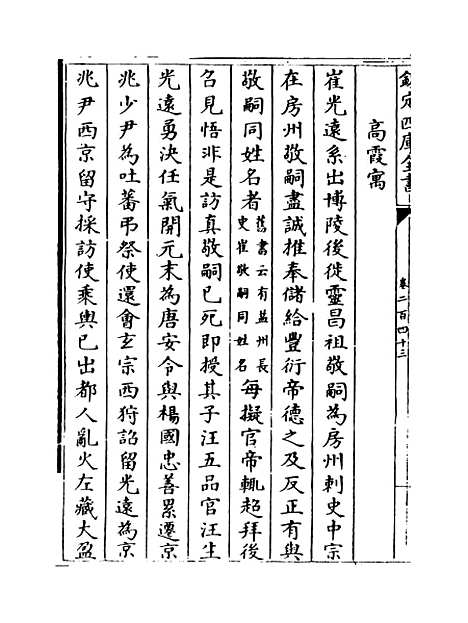 欽定四庫全書
卷二百四十三
高霞寓
崔光遠系出博陵後徙靈昌祖敬嗣為房州刺史中宗
在房州敬嗣盡誠推奉儲給豐衍帝德之及反正有與
敬嗣同姓名者舊書云有益州長史崔敬嗣同姓名每擬官帝輒超拜後
召見悟非是訪真敬嗣已死即授其子汪五品官汪生
光遠勇決任氣開元末為唐安令與楊國忠善累遷京
兆少尹為吐蕃弔祭使還會玄宗西狩詔留光遠為京
兆尹西京留守採訪使乘輿已出都人亂火左藏大盈